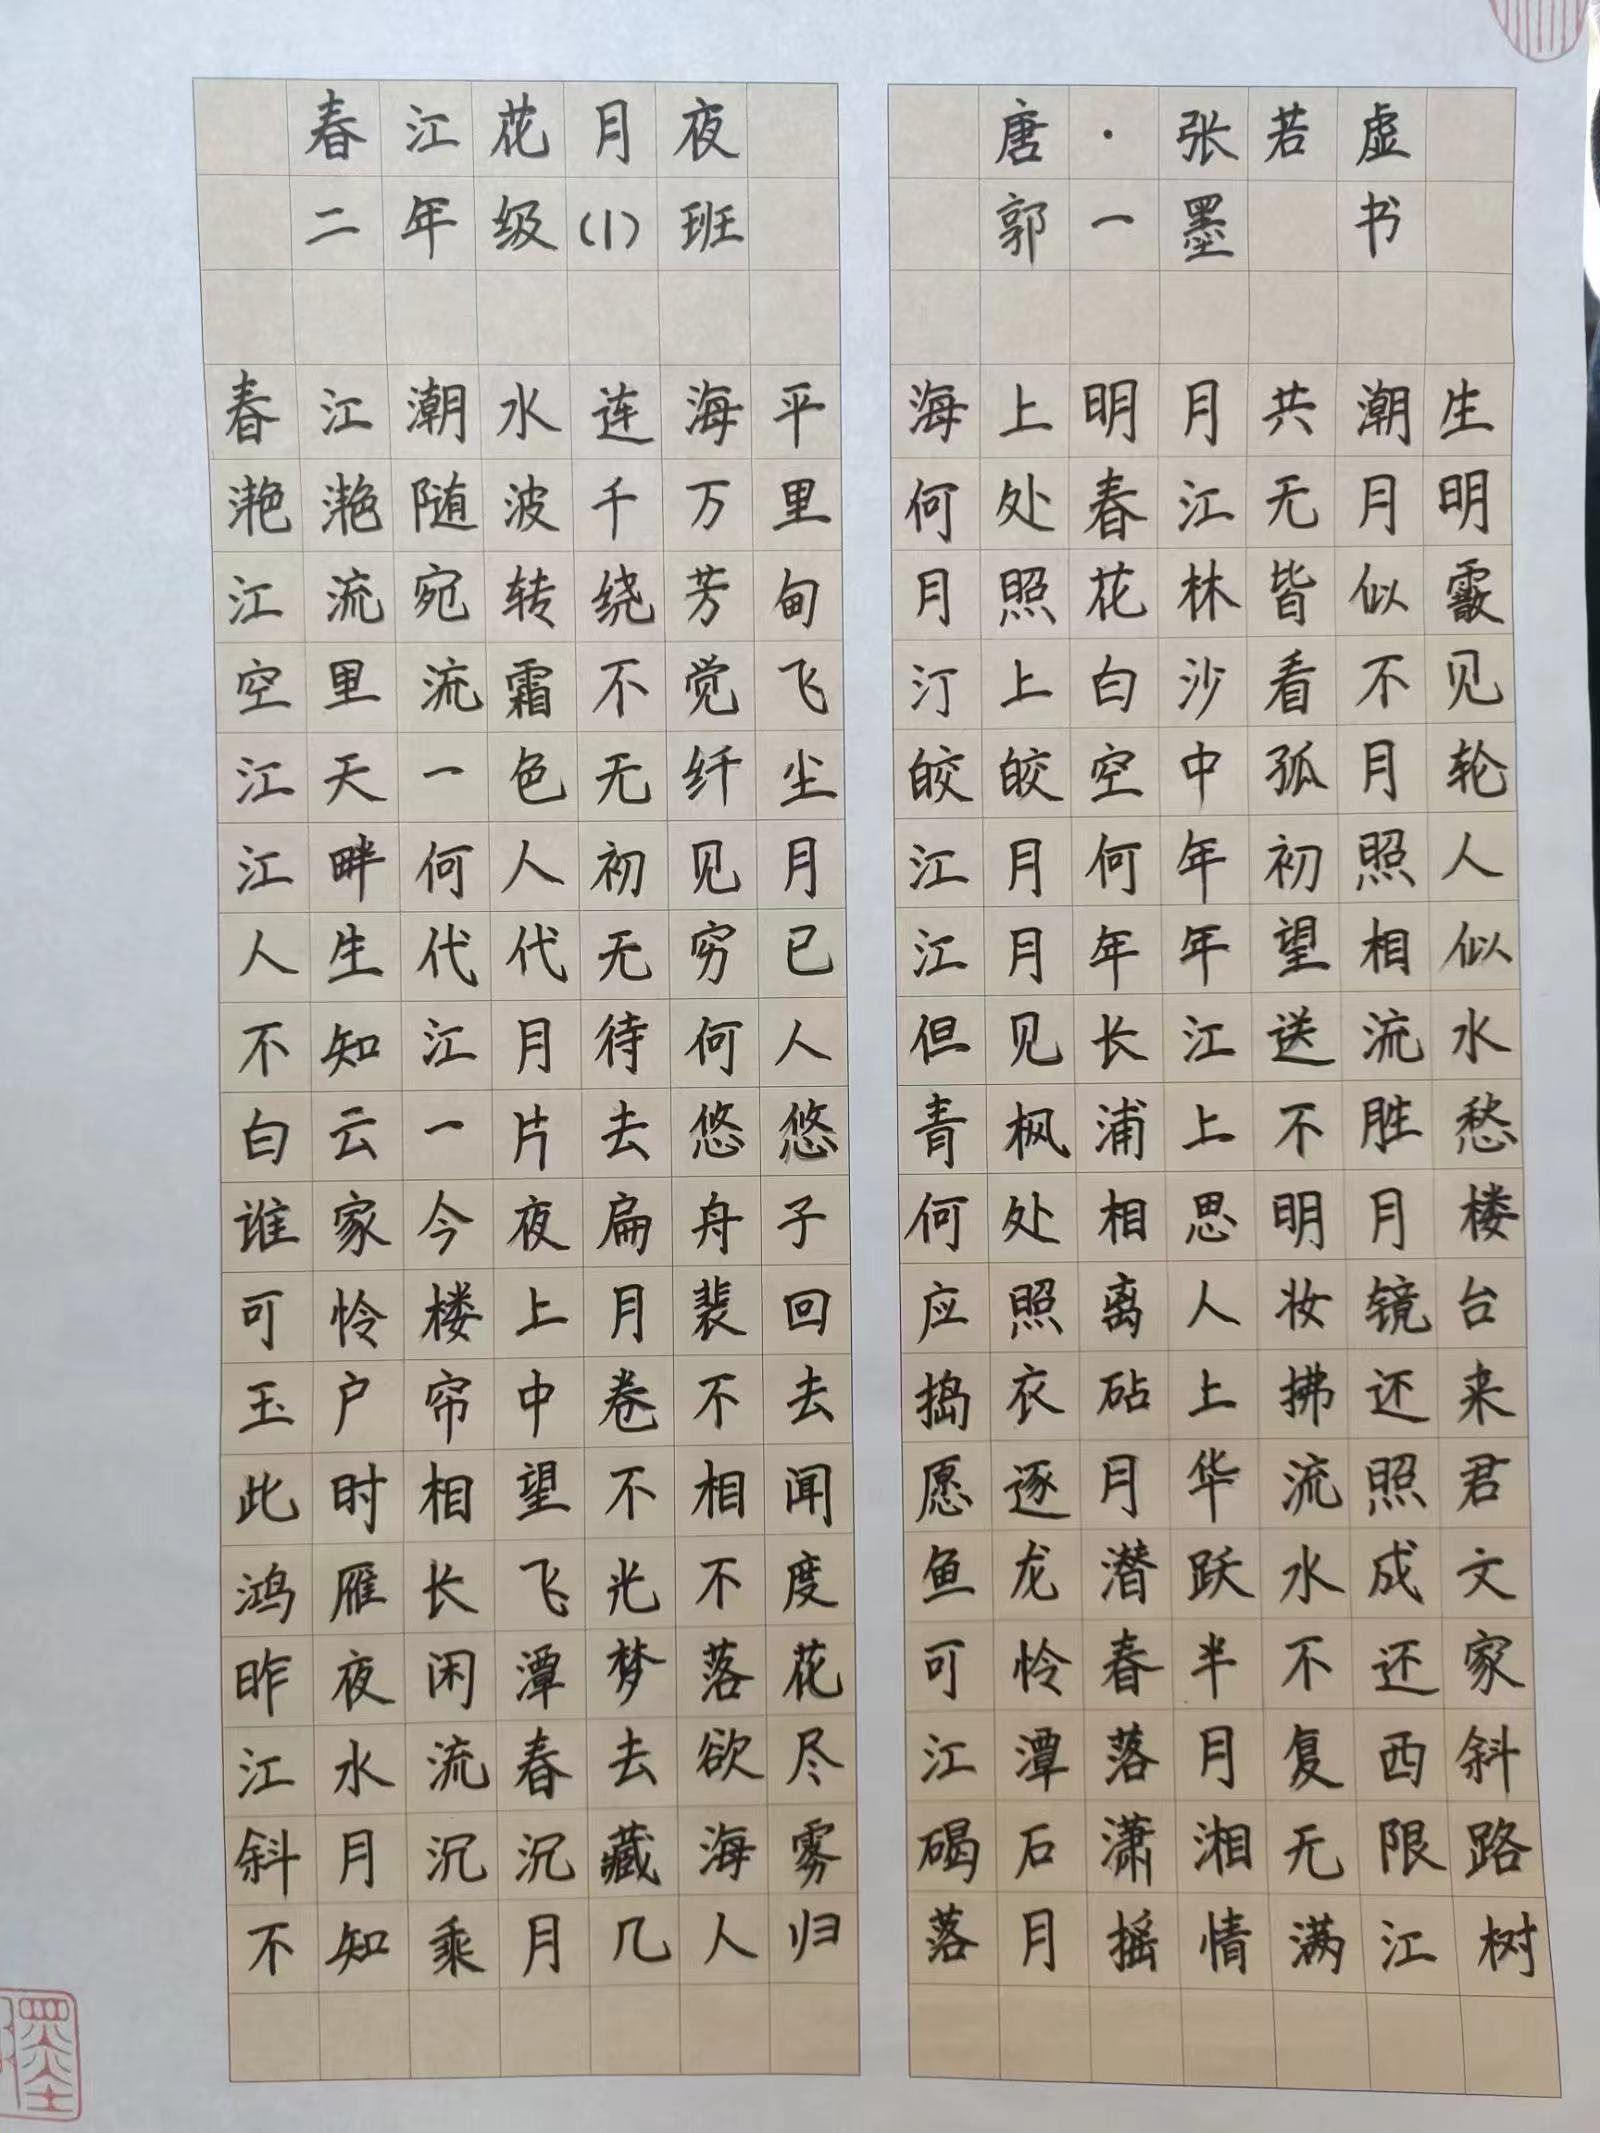 春江花月夜 唐·张若虚
二年级(1)班 郭一墨 书
春江潮水连海平 海上明月共潮生
滟滟随波千万里 何处春江无月明
江流宛转绕芳甸 月照花林皆似霰
空里流霜不觉飞 汀上白沙看不见
江天一色无纤尘 皎皎空中孤月轮
江畔何人初见月 江月何年初照人
人生代代无穷已 江月年年望相似
不知江月待何人 但见长江送流水
白云一片去悠悠 青枫浦上不胜愁
谁家今夜扁舟子 何处相思明月楼
可怜楼上月裴回 应照离人妆镜台
玉户帘中卷不去 捣衣砧上拂还来
此时相望不相闻 愿逐月华流照君
鸿雁长飞光不度 鱼龙潜跃水成文
昨夜闲潭梦落花 可怜春半不还家
江水流春去欲尽 江潭落月复西斜
斜月沉沉藏海雾 碣石潇湘无限路
不知乘月几人归 落月摇情满江树